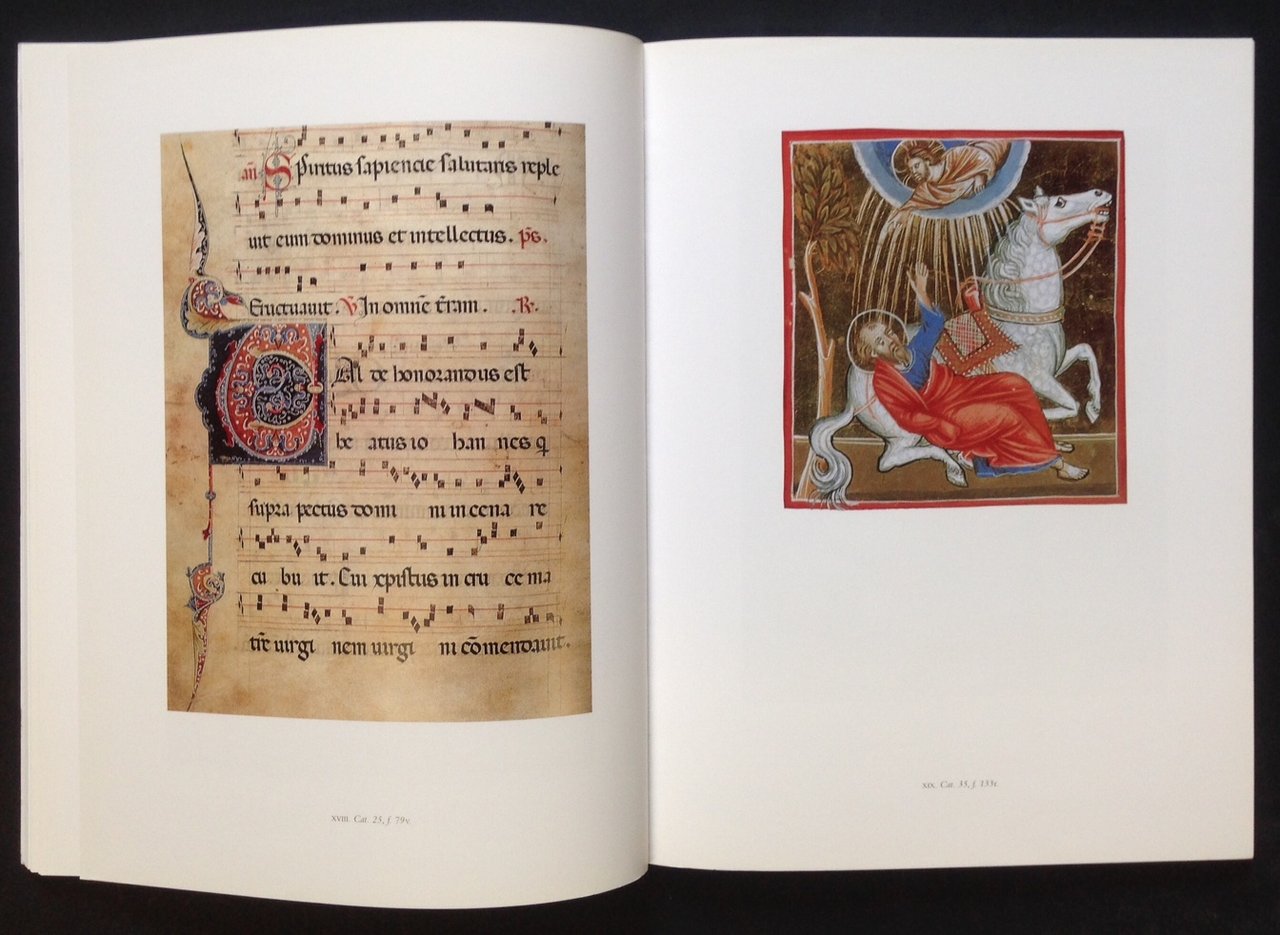 an̄ Spiritus sapiencie salutaris reple
uit eum dominus et intellectus. ps̄.
Eructauit. V In omnē t̄ram. .R.
Val de honorandus est
be atus io han nes q̄
supra pectus domi ni in cena re
cu bu it. Cui xpistus in cru ce ma
tr̄e uirgi nem uirgi ni cōmendauit.
XVIII. Cat. 25, f. 79v.
XIX. Cat. 35, f. 133r.